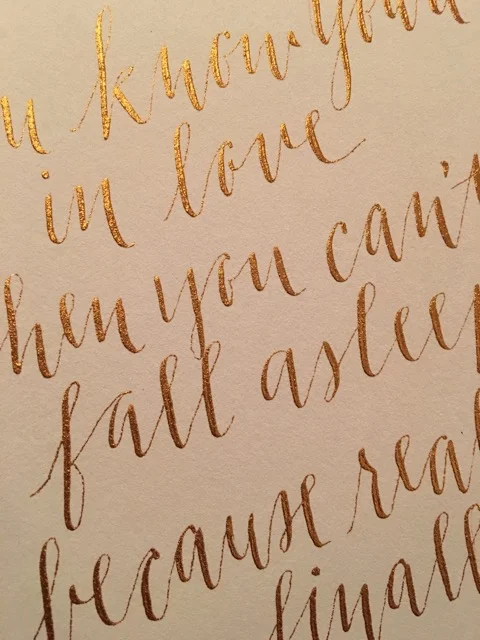 u know you
in love
hen you can't
fall asleep
because rea
finall